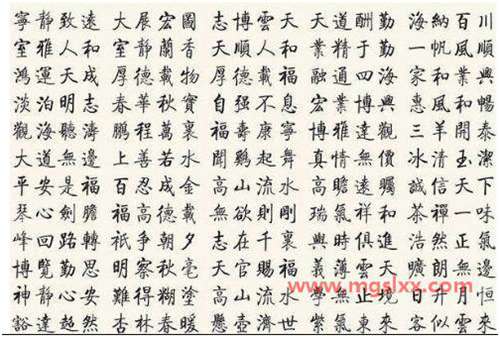 寧靜致遠 大展宏圖 志博雲天 天道酬勤 海納百川
室雅人和 室靜蘭香 大順人和 業精于勤 一帆風順
鴻運天成 厚德載物 厚德載福 融通四海 家和業興
淡泊明志 春華秋實 自强不息 宏業興 惠風和暢
觀海聽濤 鵬程萬裏 福壽康寧 博雅達觀 三羊開泰
大道無邊 上善若水 聞鷄起舞 真情無價 冰清玉潔
平安是福 百忍成金 高山流水 高瞻遠矚 誠信天下
琴心劍膽 福高德載 無欲則剛 瑞氣祥和 茶禪一味
峰回路轉 祇爭朝夕 志在千裏 與時俱進 浩然正氣
博覽勤思 明察秋毫 天官賜福 義薄雲天 朗無邊
神靜心安 難得糊塗 高山流水 學無止境 日升月恒
豁達超然 杏林春暖 懸壺濟世 紫氣東來 客似雲來
www.mgslxx.com